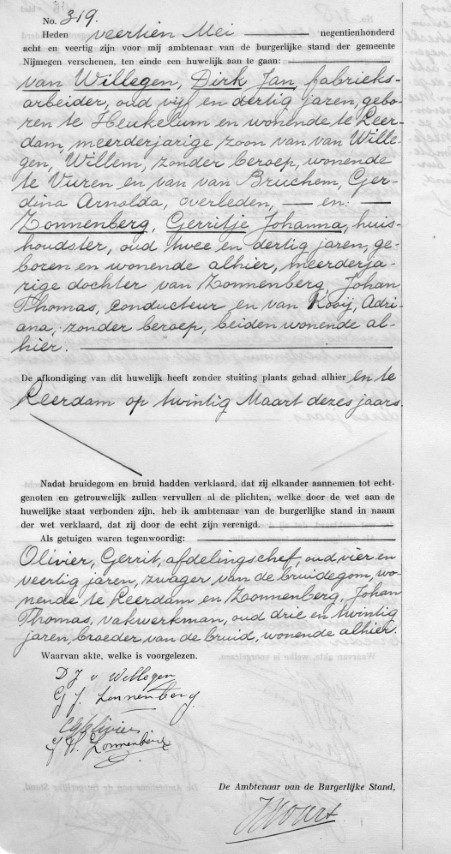 No. 319.
Heden veertien Mei negentienhonderd
acht en veertig zijn voor mij ambtenaar van de burgerlijke stand der gemeente
Nijmegen verschenen, ten einde een huwelijk aan te gaan:
van Willegen, Dirk Jan, fabrieks-
arbeider, oud vijf en dertig jaren, gebo-
ren te Heukelum en wonende te Leer-
dam, meerderjarige zoon van van Wille-
gen, Willem, zonder beroep, wonende
te Vuren en van van Bruchem, Ger-
dina Arnolda, overleden, — en: —
Zonnenberg, Gerritje Johanna, huis-
houdster, oud twee en dertig jaren, ge-
boren en wonende alhier, meerderja-
rige dochter van Zonnenberg, Johan
Thomas, conducteur en van Rooij, Adri-
ana, zonder beroep, beiden wonende al-
hier.
De afkondiging van dit huwelijk heeft zonder stuiting plaats gehad alhier en te
Leerdam op twintig Maart dezes jaars.
Nadat bruidegom en bruid hadden verklaard, dat zij elkander aannemen tot echt-
genoten en getrouwelijk zullen vervullen al de plichten, welke door de wet aan de
huwelijke staat verbonden zijn, heb ik ambtenaar van de burgerlijke stand in naam
der wet verklaard, dat zij door de echt zijn verenigd.
Als getuigen waren tegenwoordig:
Olivier, Gerrit, afdelingschef, oud vier en
veertig jaren, zwager van de bruidegom, wo-
nende te Leerdam en Zonnenberg, Johan
Thomas, vakwerkman, oud drie en twintig
jaren, broeder van de bruid, wonende alhier.
Waarvan akte, welke is voorgelezen.
D J v Willegen
G J Zonnenberg
Olivier
Zonnenberg
De Ambtenaar van de Burgerlijke Stand,